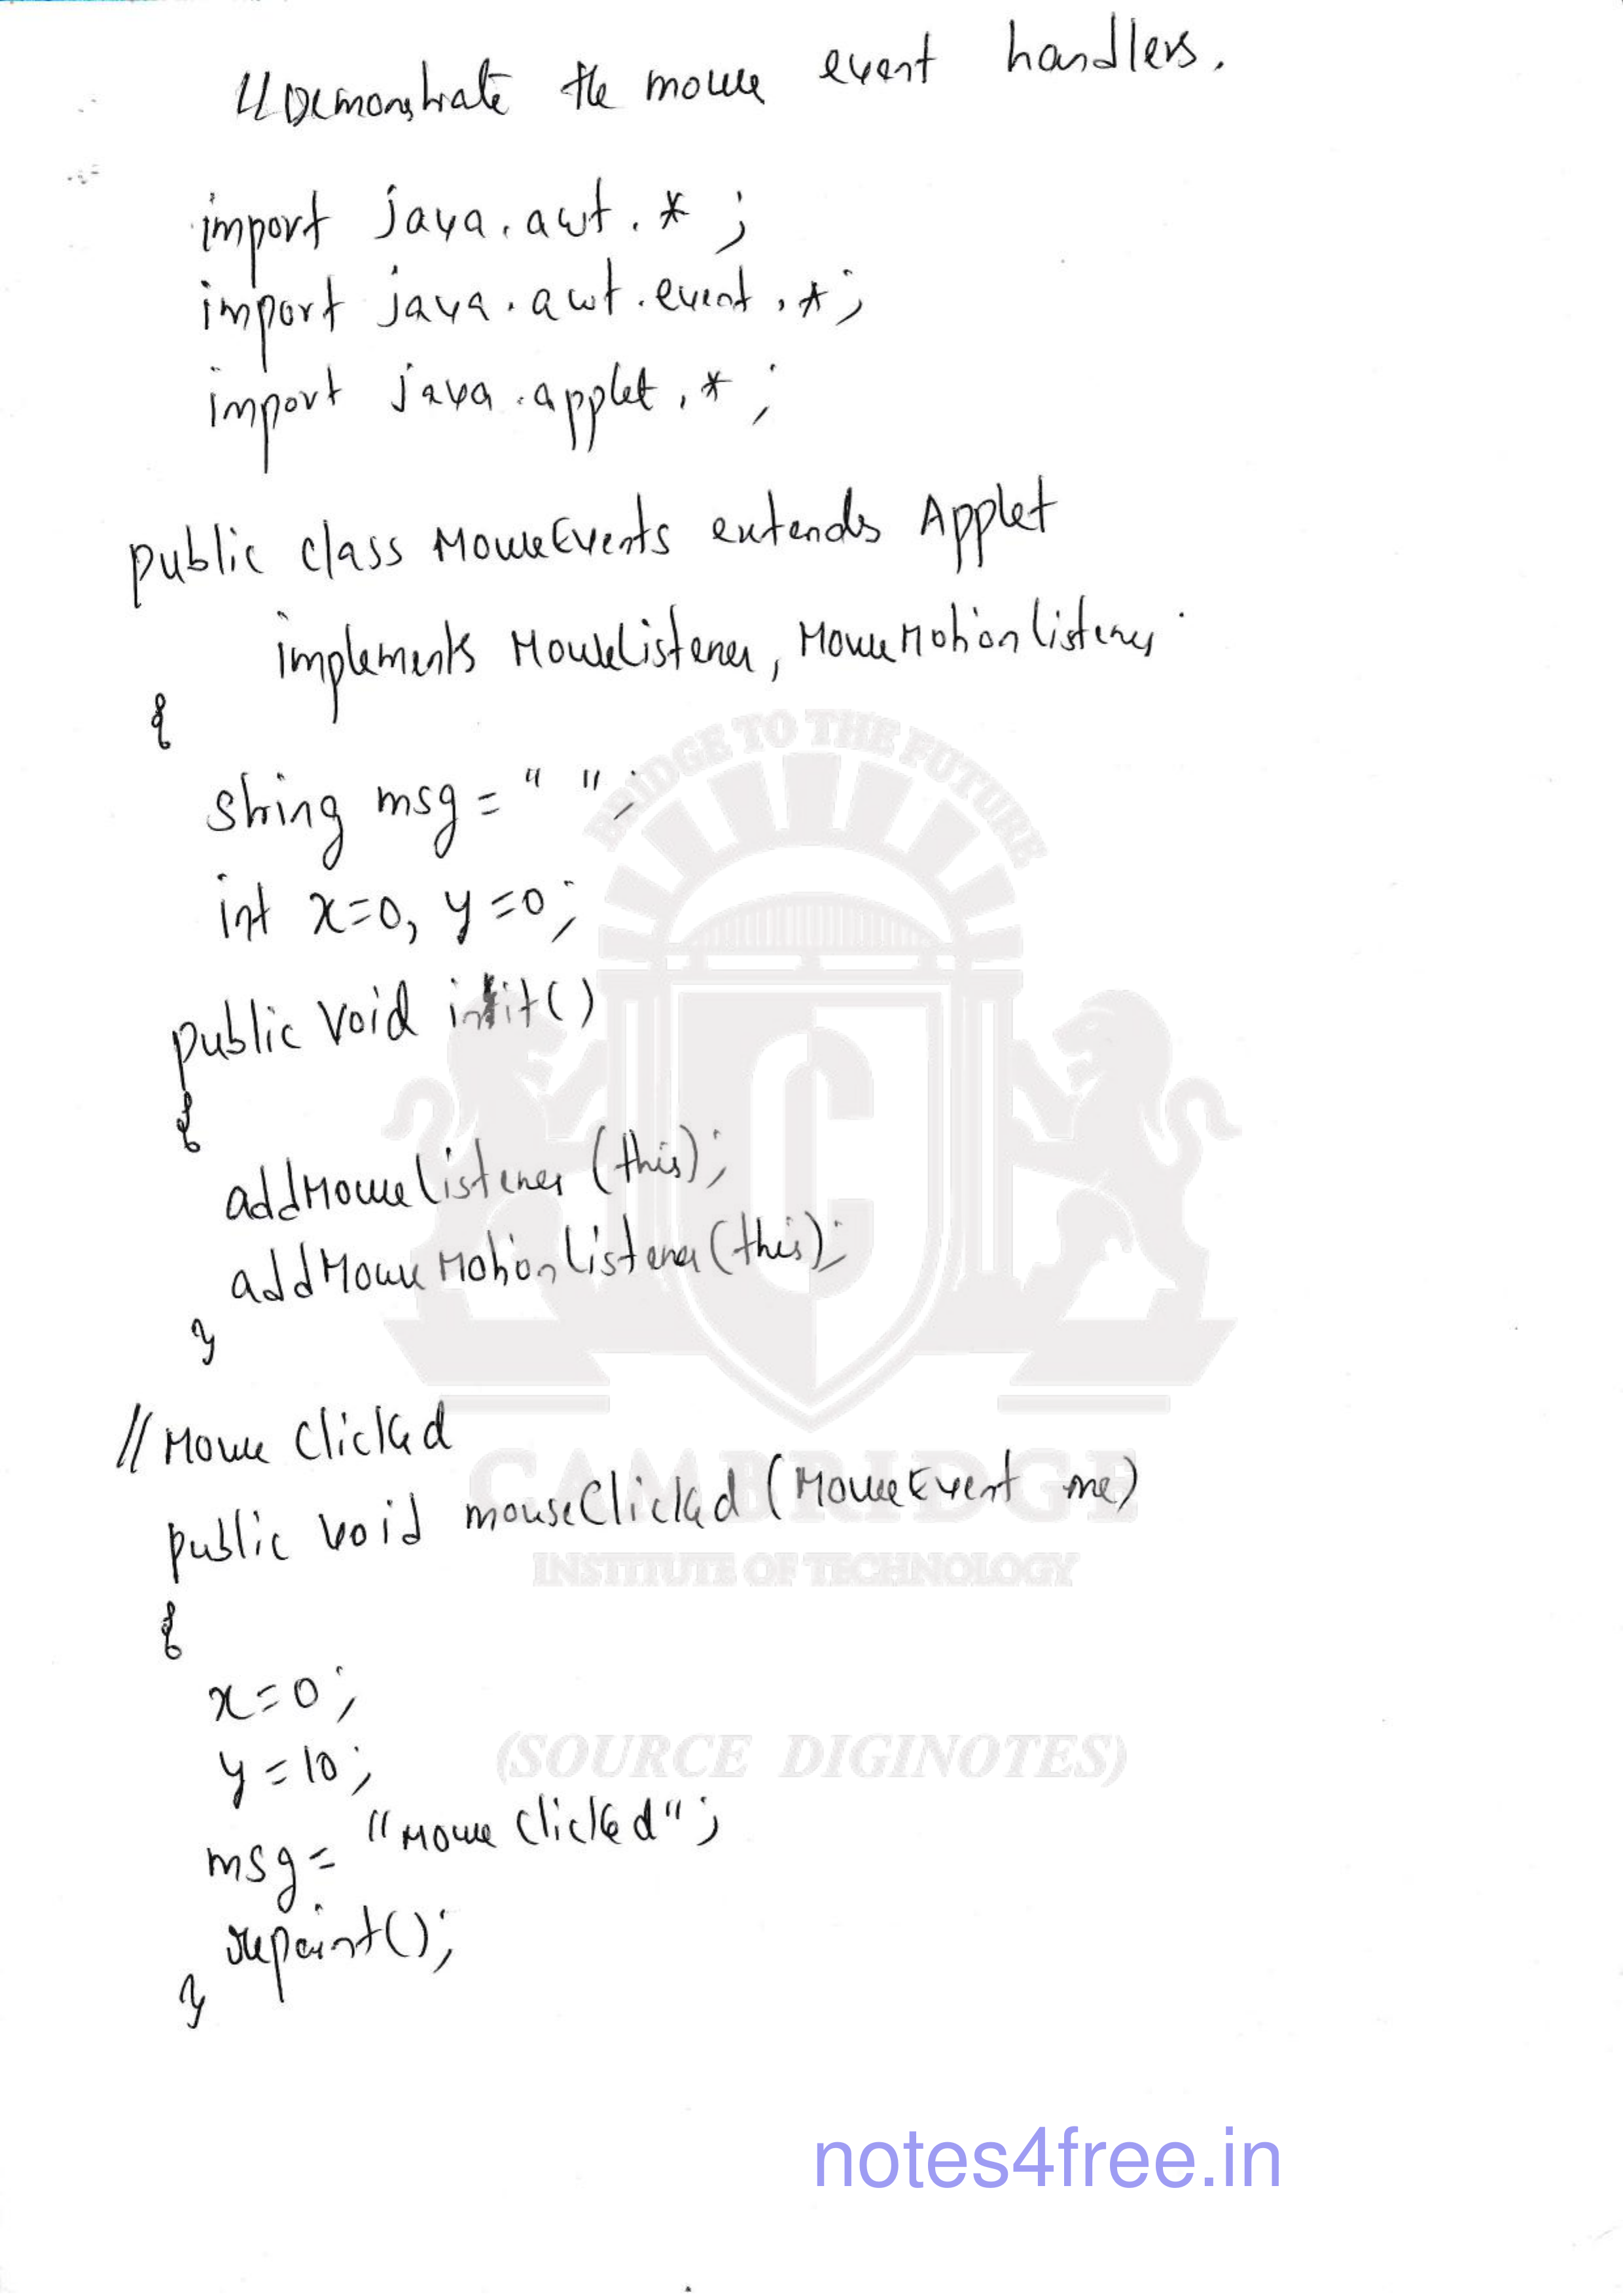 //Demonstrate the mouse event handlers.
import java.awt.*;
import java.awt.event.*;
import java.applet.*;
public class MouseEvents extends Applet
implements MouseListener, MouseMotionListener
{
String msg = " ";
int x=0, y=0;
public void init()
{
addMouseListener (this);
addMouseMotionListener (this);
}
// Mouse Clicked
public void mouseClicked (MouseEvent me)
{
x=0;
y=10;
msg = "Mouse Clicked";
repaint();
}
BRIDGE TO THE FUTURE
C
CAMBRIDGE
INSTITUTE OF TECHNOLOGY
(SOURCE DIGINOTES)
notes4free.in